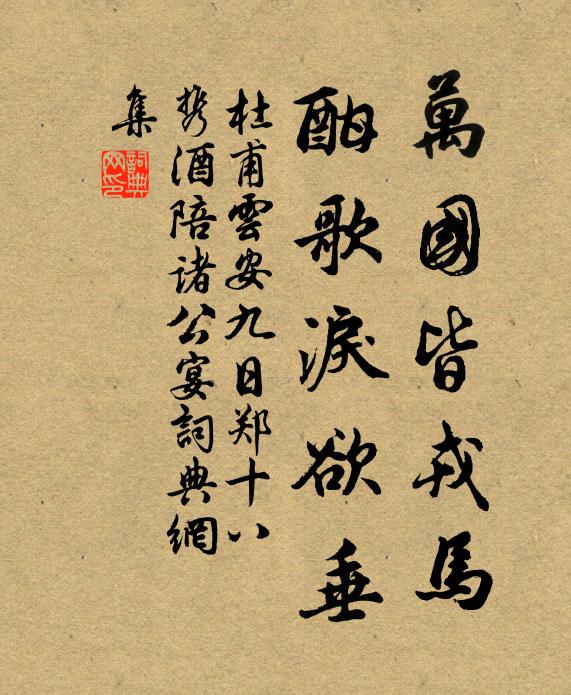 萬國皆戎馬
酣歌淚欲垂
杜甫雲安九日郑十八
携酒陪诸公宴詞典網
集
詞典网印